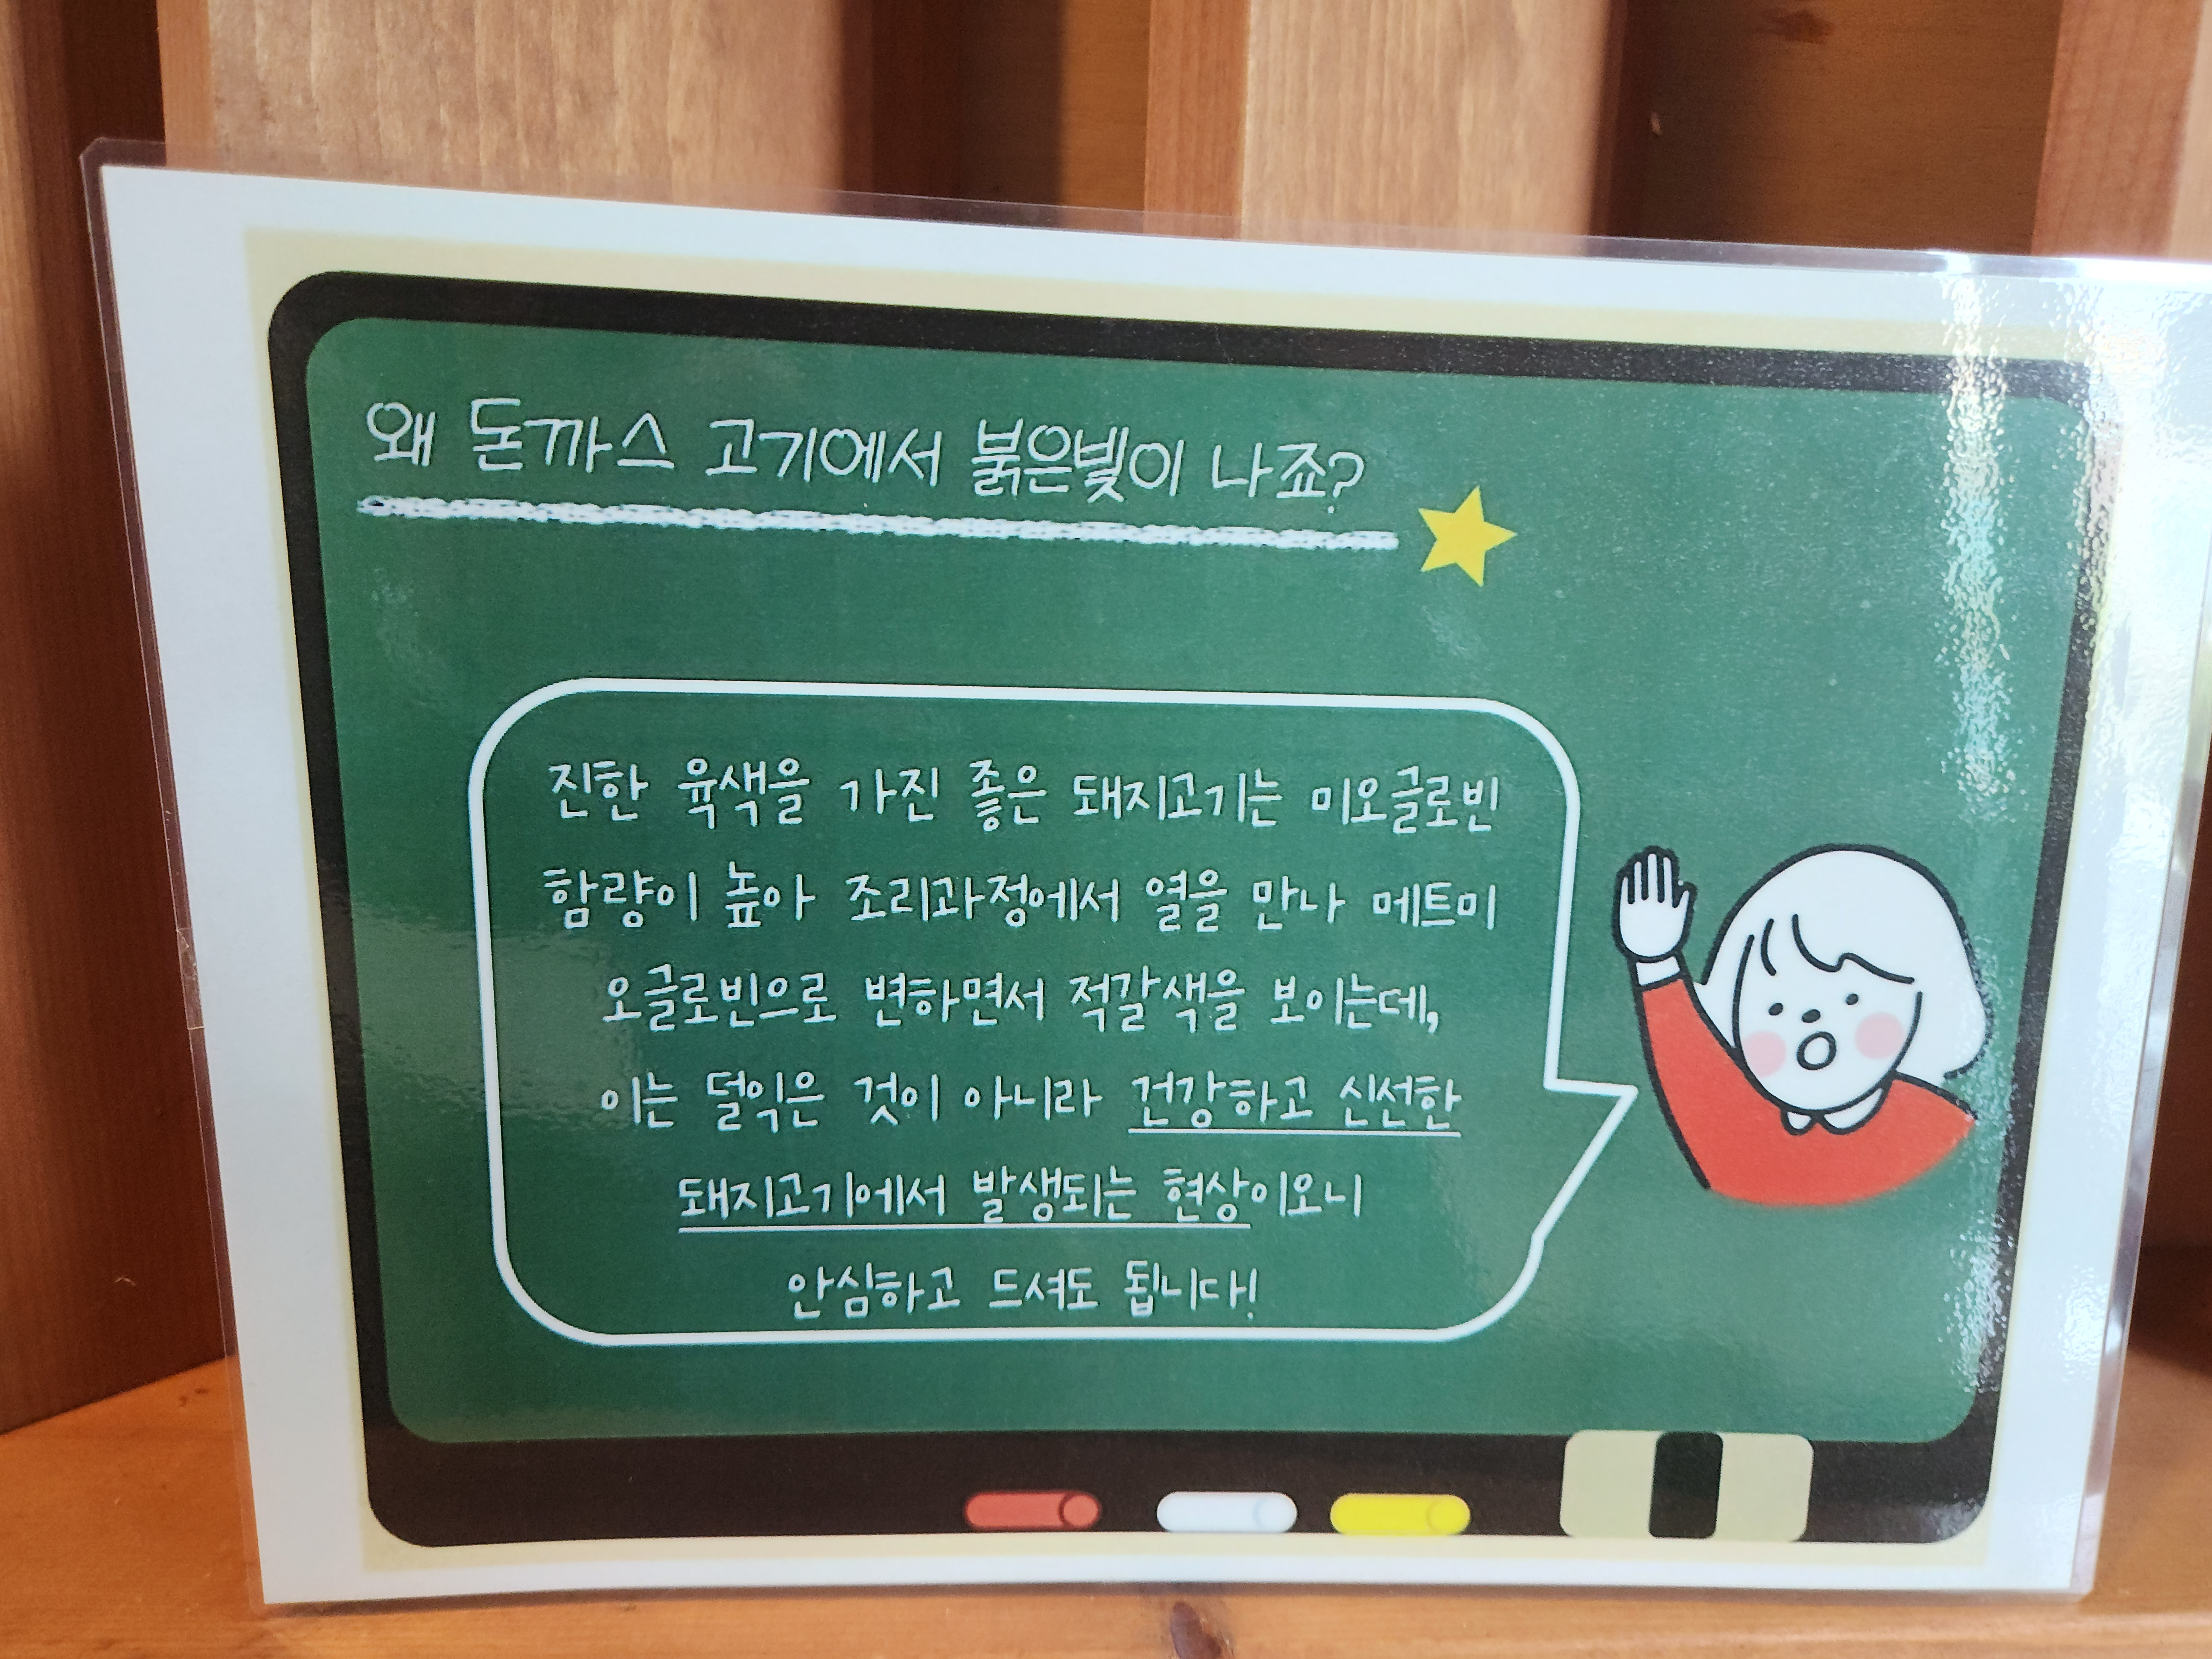 왜 돈까스 고기에서 붉은빛이 나죠?
진한 육색을 가진 좋은 돼지고기는 미오글로빈
함량이 높아 조리과정에서 열을 만나 메트미
오글로빈으로 변하면서 적갈색을 보이는데,
이는 덜익은 것이 아니라 건강하고 신선한
돼지고기에서 발생되는 현상이오니
안심하고 드셔도 됩니다!